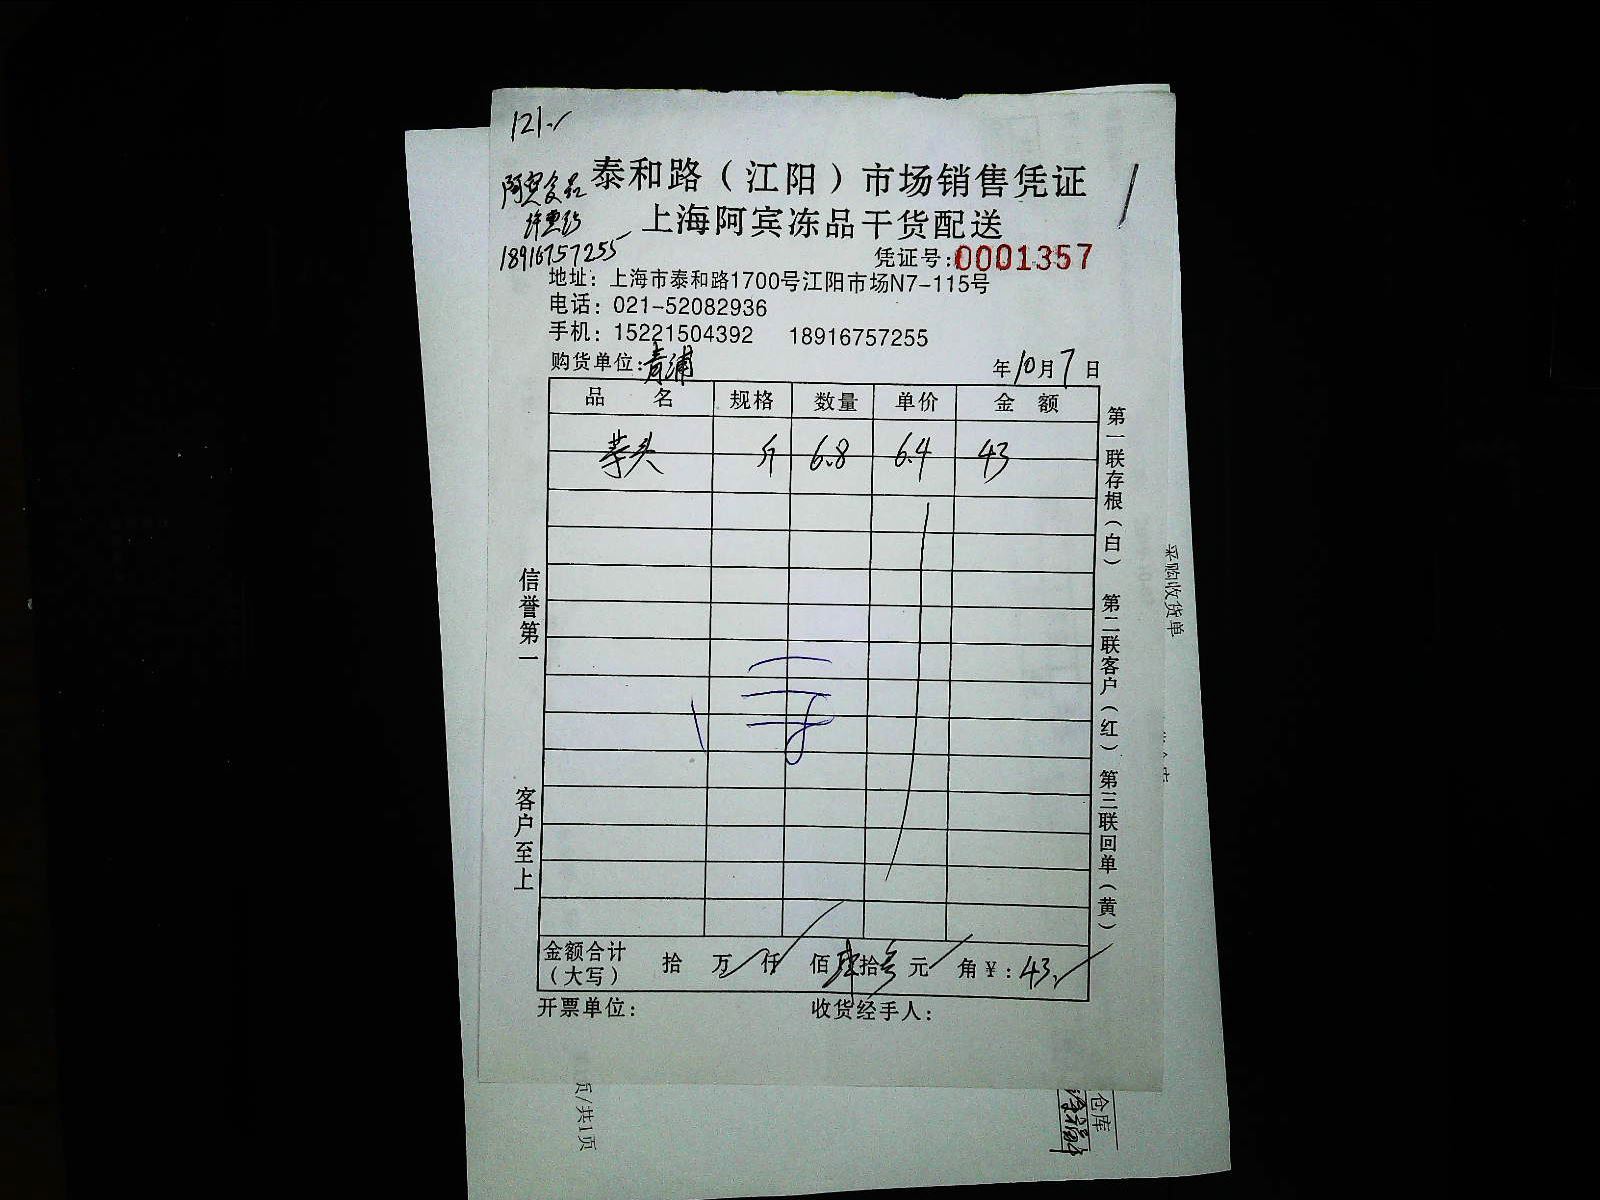 121.
泰和路（江阳）市场销售凭证
阿宾食品
上海阿宾冻品干货配送
18916757255
凭证号:0001357
地址：上海市泰和路1700号江阳市场N7-115号
电话：021-52082936
手机：15221504392 18916757255
购货单位:青浦 年10月7日
品 名 规格 数量 单价 金 额
芋头 斤 6.8 6.4 43
第一联存根（白） 第二联客户（红） 第三联回单（黄）
信誉第一 客户至上
金额合计（大写） 拾 万 仟 佰肆拾叁元 角￥:43.
开票单位: 收货经手人:
采购收货单
页/共1页
仓库